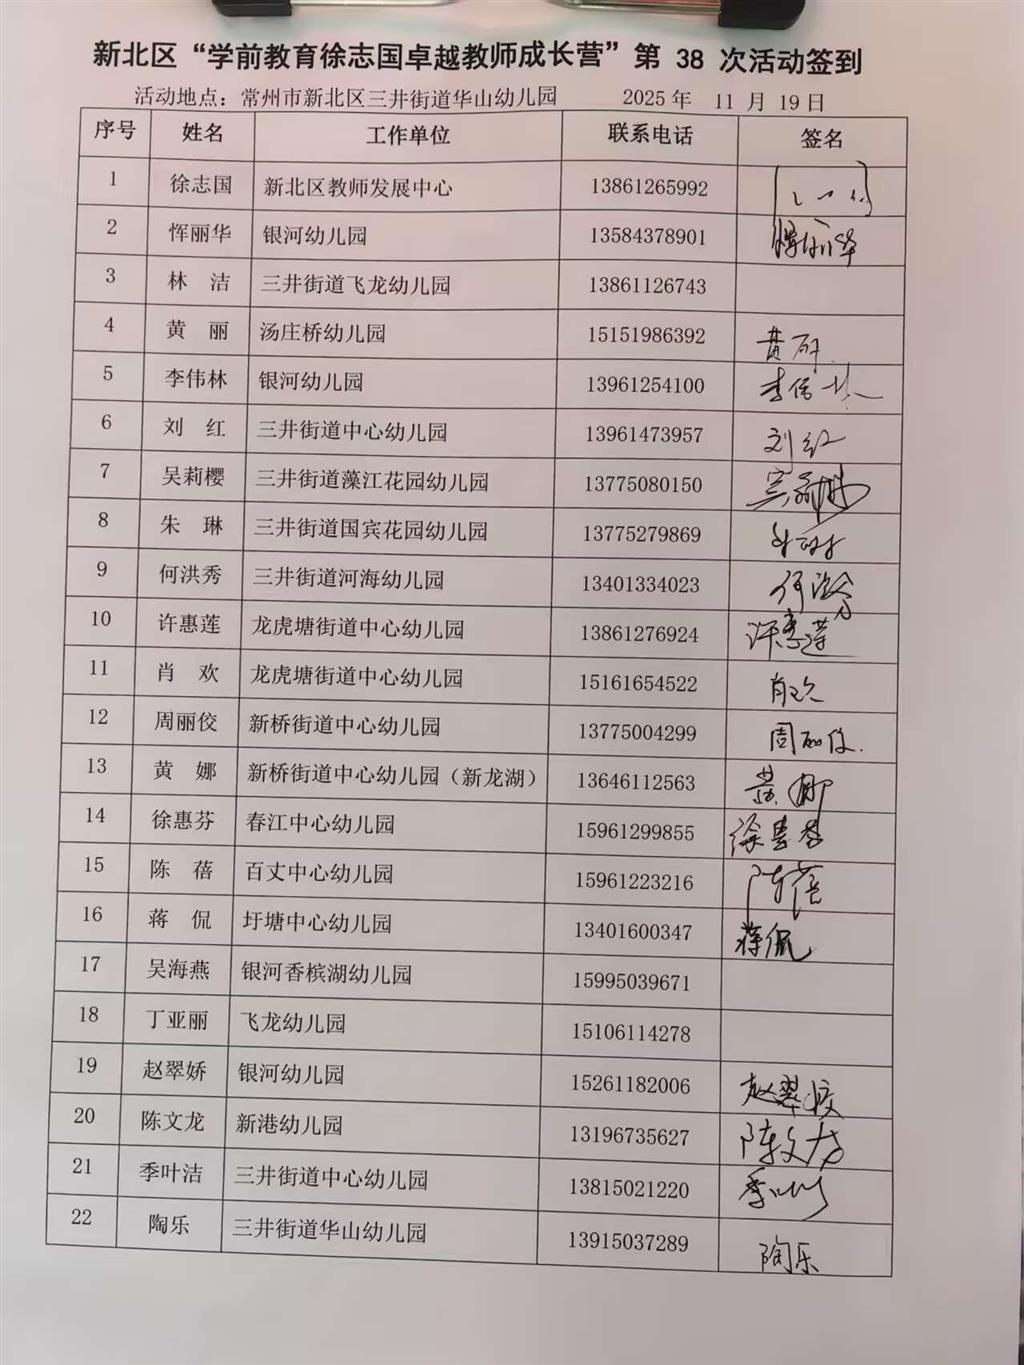 新北区“学前教育徐志国卓越教师成长营”第 38 次活动签到
活动地点：常州市新北区三井街道华山幼儿园 2025年 11 月 19日
序号 姓名 工作单位 联系电话 签名
1 徐志国 新北区教师发展中心 13861265992
2 恽丽华 银河幼儿园 13584378901 恽丽华
3 林 洁 三井街道飞龙幼儿园 13861126743
4 黄 丽 汤庄桥幼儿园 15151986392 黄丽
5 李伟林 银河幼儿园 13961254100 李伟林
6 刘 红 三井街道中心幼儿园 13961473957 刘红
7 吴莉樱 三井街道藻江花园幼儿园 13775080150 吴莉樱
8 朱 琳 三井街道国宾花园幼儿园 13775279869 朱琳
9 何洪秀 三井街道河海幼儿园 13401334023 何洪秀
10 许惠莲 龙虎塘街道中心幼儿园 13861276924 许惠莲
11 肖 欢 龙虎塘街道中心幼儿园 15161654522 肖欢
12 周丽佼 新桥街道中心幼儿园 13775004299 周丽佼
13 黄 娜 新桥街道中心幼儿园（新龙湖） 13646112563 黄娜
14 徐惠芬 春江中心幼儿园 15961299855 徐惠芬
15 陈 蓓 百丈中心幼儿园 15961223216 陈蓓
16 蒋 侃 圩塘中心幼儿园 13401600347 蒋侃
17 吴海燕 银河香槟湖幼儿园 15995039671
18 丁亚丽 飞龙幼儿园 15106114278
19 赵翠娇 银河幼儿园 15261182006 赵翠娇
20 陈文龙 新港幼儿园 13196735627 陈文龙
21 季叶洁 三井街道中心幼儿园 13815021220
22 陶乐 三井街道华山幼儿园 13915037289 陶乐